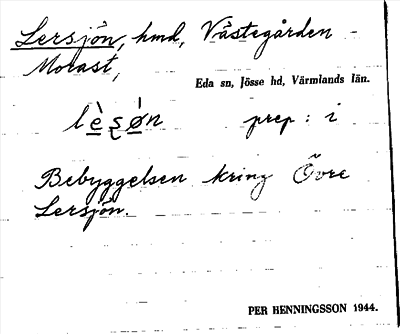 Lersjön, hmd, Västegården -
Morast,
Eda sn, Jösse hd, Värmlands län.
lèsǿn prep: i
Bebyggelsen kring Övre
Lersjön.
PER HENNINGSSON 1944.